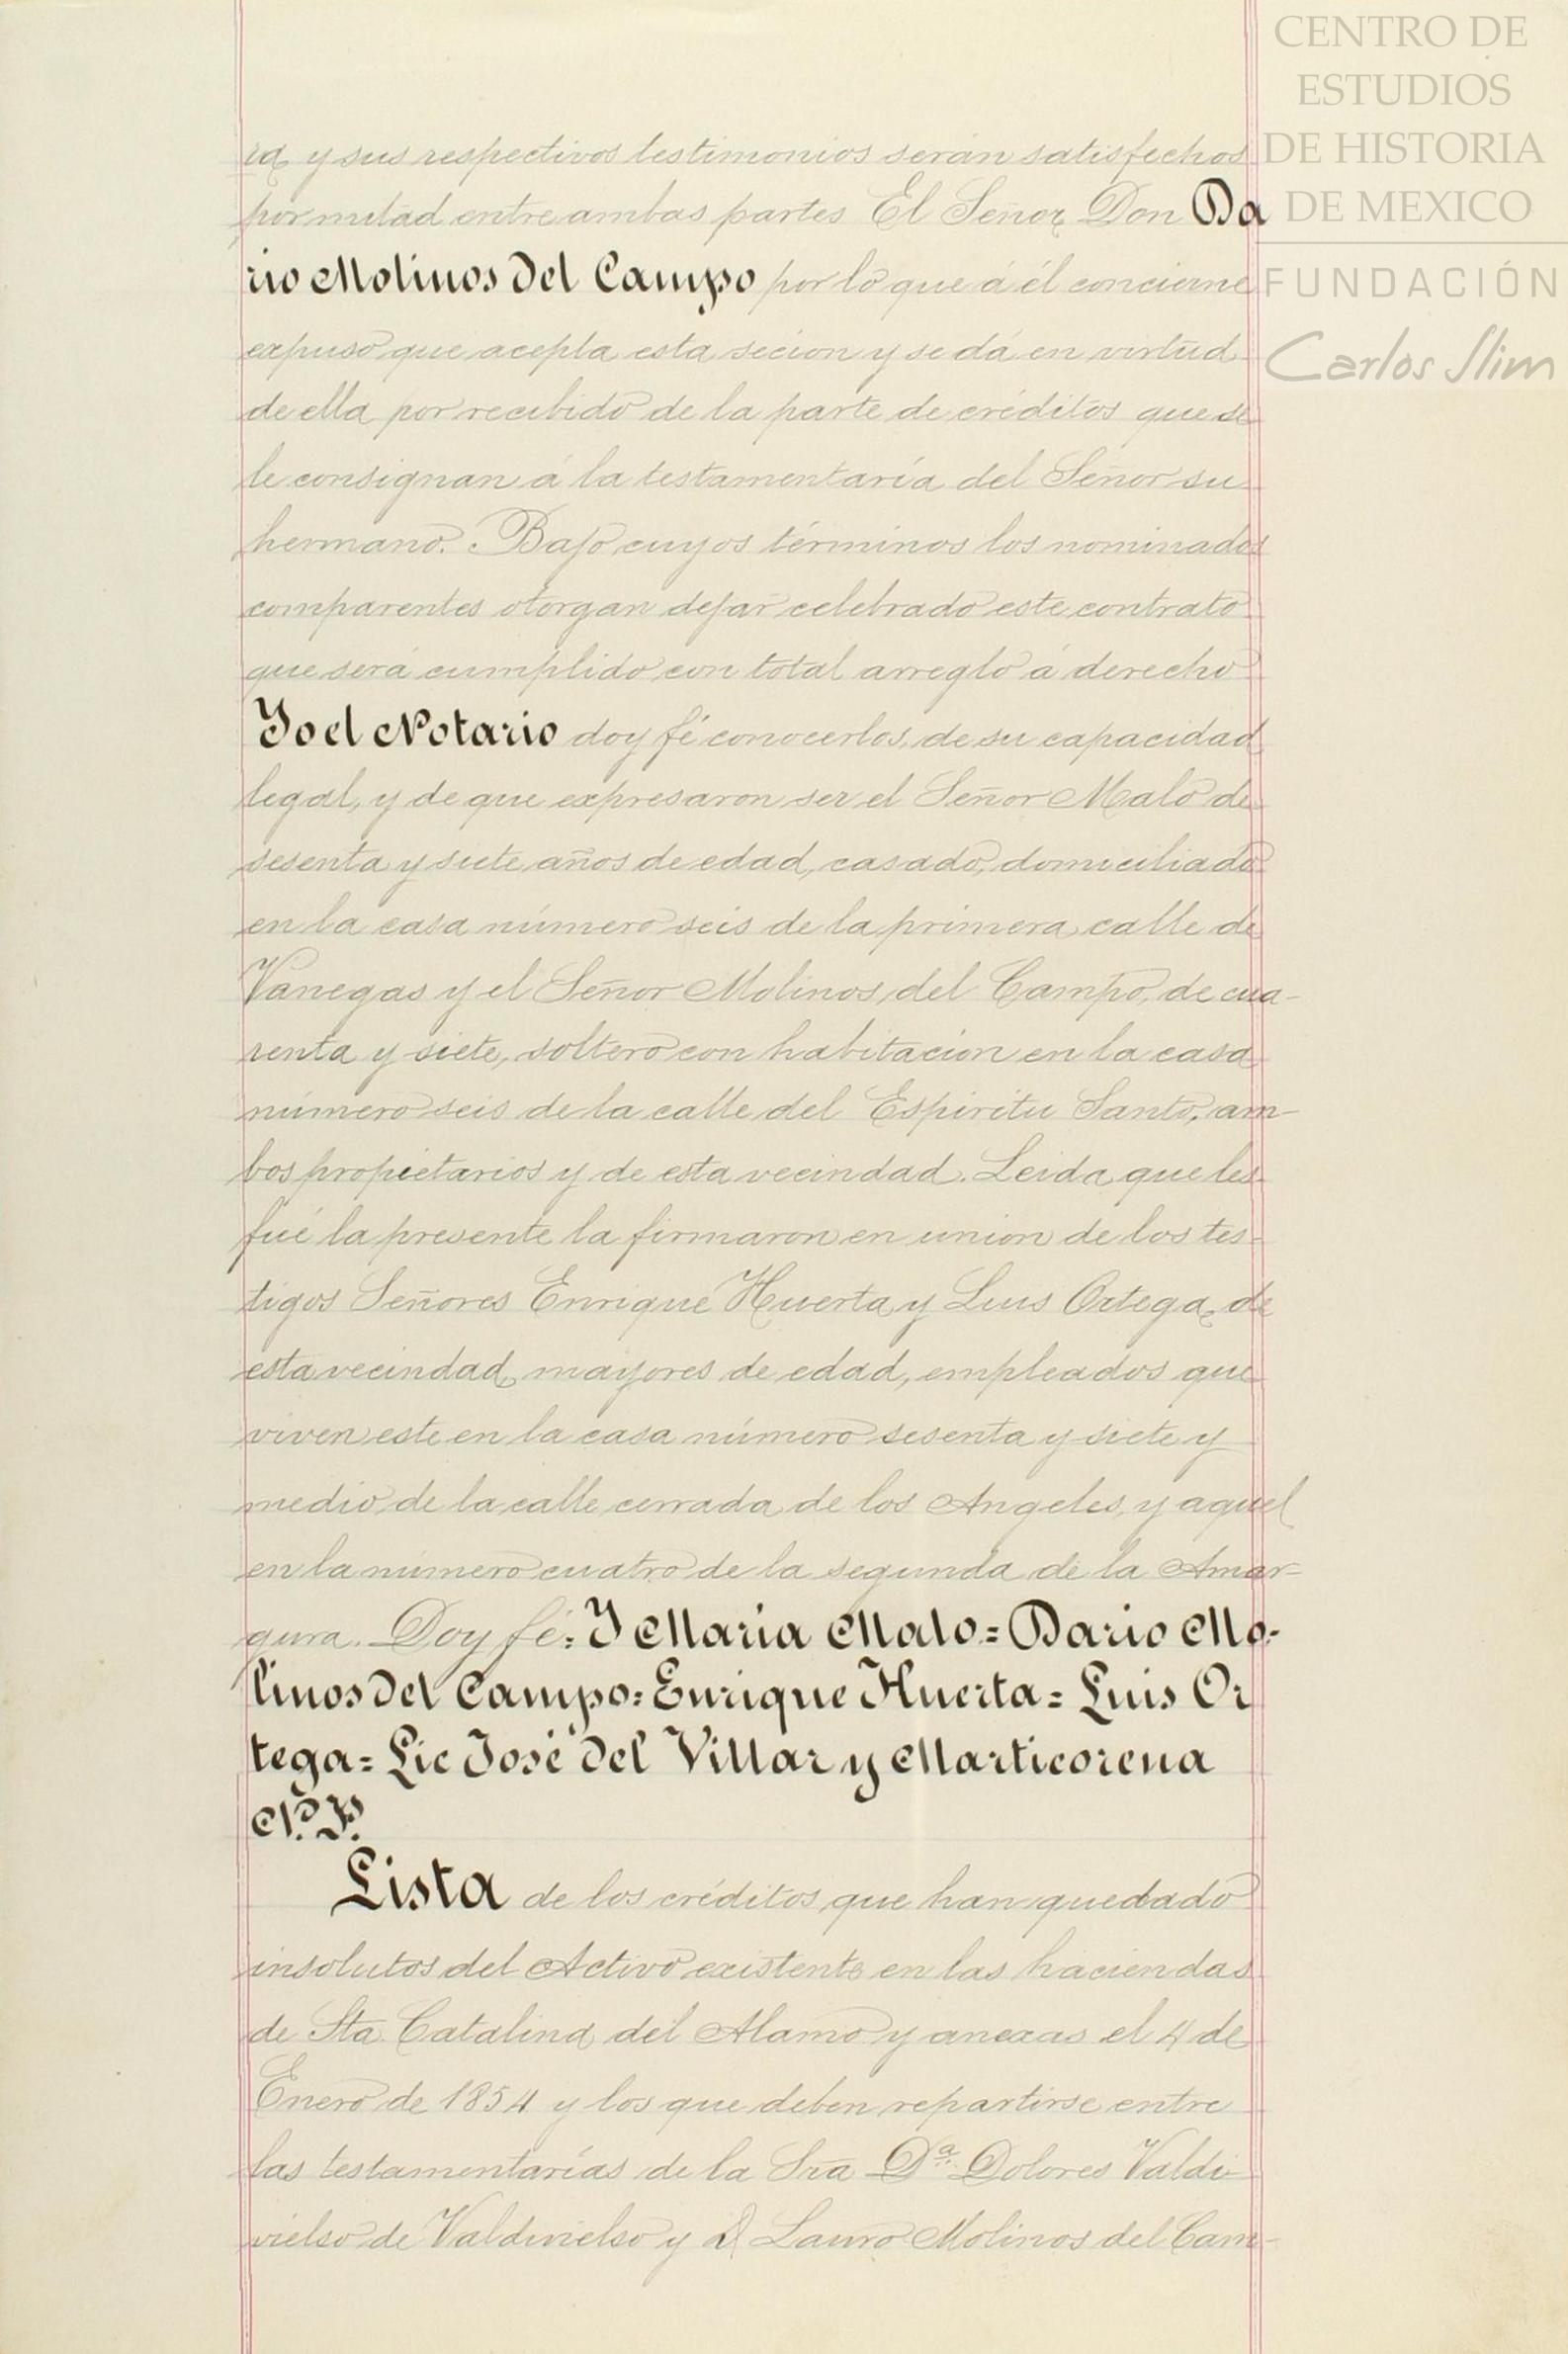 CENTRO DE
ESTUDIOS
DE HISTORIA
DE MEXICO
FUNDACIÓN
Carlos Slim
ra y sus respectivos testimonios serán satisfechos
por mitad entre ambas partes El Señor Don Da
rio Molinos del Campo por lo que á él concierne
expuso que acepta esta secion y se dá en virtud
de ella por recibido de la parte de créditos que se
le consignan á la testamentaría del Señor su
hermano. Bajo cuyos términos los nominados
comparentes otorgan dejar celebrado este contrato
que será cumplido con total arreglo á derecho
Yo el Notario doy fé conocerlos, de su capacidad
legal, y de que expresaron ser el Señor Malo de
sesenta y siete años de edad, casado, domiciliado
en la casa número seis de la primera calle de
Vanegas y el Señor Molinos del Campo, de cua-
renta y siete, soltero con habitacion en la casa
número seis de la calle del Espiritu Santo, am-
bos propietarios y de esta vecindad. Leida que les
fué la presente la firmaron en union de los tes-
tigos Señores Enrique Huerta y Luis Ortega, de
esta vecindad, mayores de edad, empleados que
viven este en la casa número sesenta y siete y
medio de la calle cerrada de los Angeles, y aquel
en la número cuatro de la segunda de la Amar-
gura. Doy fé: J Maria Malo = Dario Mo-
linos del Campo = Enrique Huerta = Luis Or
tega = Lic José del Villar y Marticorena
N. P.
Lista de los créditos que han quedado
insolutos del Activo existente en las haciendas
de Sta Catalina del Alamo y anexas el 4 de
Enero de 1854 y los que deben repartirse entre
las testamentarías de la Sra Dª Dolores Valdi
vielso de Valdivielso y D Lauro Molinos del Cam-